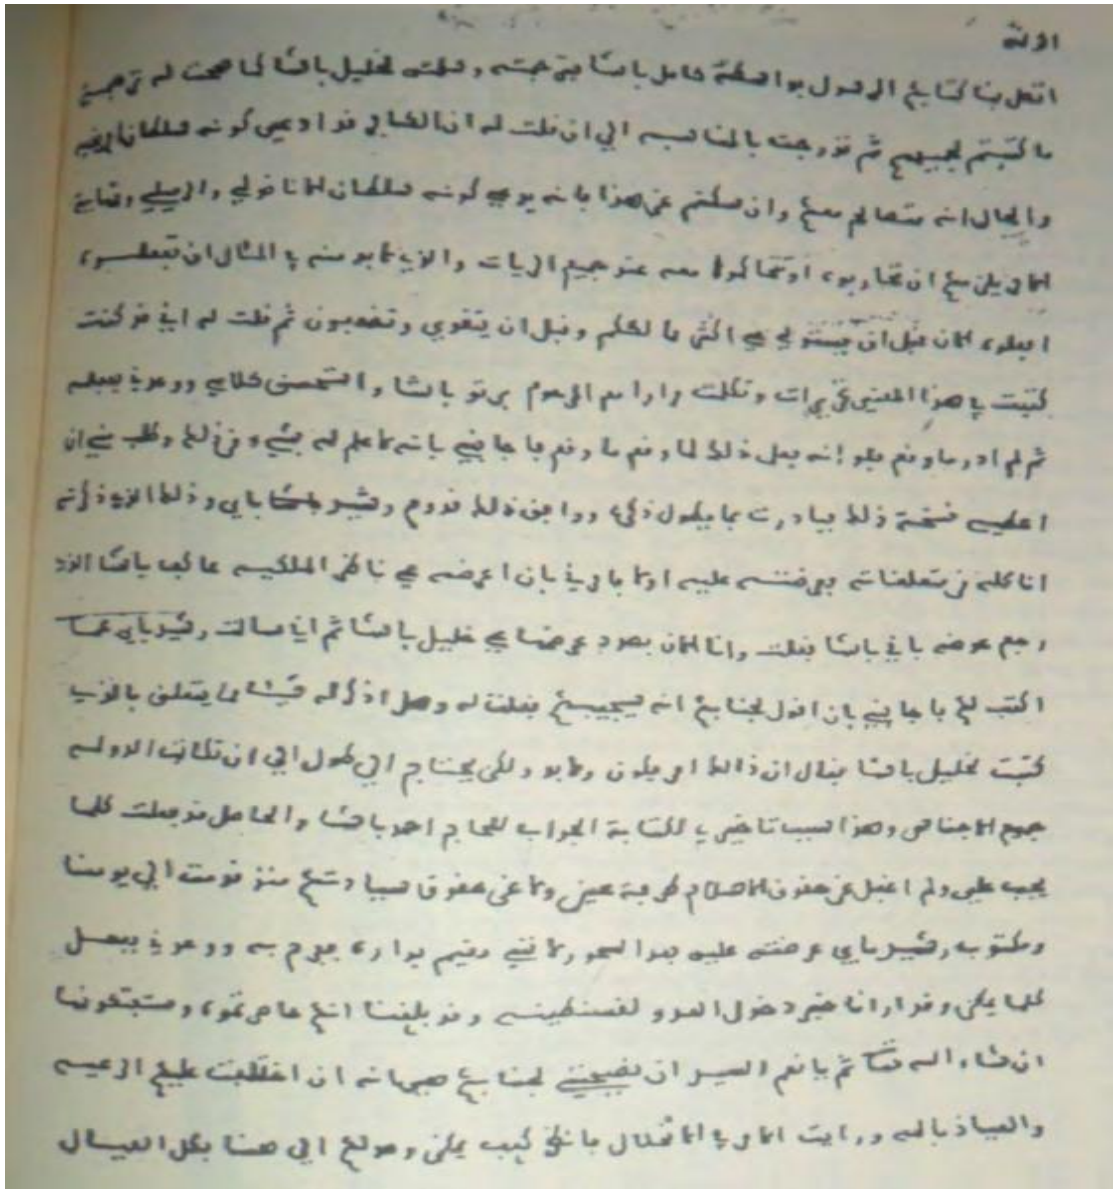 الاثة
اتصل بنا كتابكم الرسول بواسطة كامل باشا بترجمته وقلت لخليل باشا لما صحت له ترجمة
ما كتبتم يجيبهم ثم تدرجت بالمناسبة الى ان قلت له ان الشامي قد ادعى كونه سلطان
والحال انه متصالح معكم وان سكتم عن هذا بانه يدعي كونه سلطان الاناضولي والرميلي
اما يليق معكم ان تحاربوه او تتحاكموا معه عند جميع الريات والذي لا بد منه في المثال ان تبعثوا
الان قبل ان يستولي على اكثر ما لكم وقبل ان يتقوى وتضعفون ثم قلت له اني قد كنت
كتبت في هذا المعنى تحريرات وتكلمت وارا المرحوم برتو باشا واستحسن كلامي ووعدني بفعله
ثم لم ادر ما وقع فلو انه فعل ذلك لما وقع ما وقع فاجابني بانه لا علم له بشيء من ذلك وطلب مني ان
اعطيه نسخة ذلك فبادرت بما يطول ذكره ووافق ذلك قدوم رشيد باي وذلك الذي ذكرته
انا كله من متعلقاته فعرضته عليه اولا فامرني بان اعرضه على ناظر الملكيه عاكف باشا الذي
رجع عوضه باني باشا ففعلت وانا الان بصدد عرضها على خليل باشا ثم اني سالت رشيد باي عما
اكتب لكم فاجابني بان اقول لجنابكم انه سيجيبكم فقلت له وهل اذكر له شيئا مما يتعلق بالذي
كتبت لخليل باشا فقال ان ذالك امر يكون ولا بد ولكن يحتاج الى طول الى ان تكاتب الدولة
جميع الاجناس وهذا سبب تاخيري لكتابة الجواب للحاج احمد باشا والحاصل قد فعلت كلما
يجب علي ولم اغفل عن حقوق الاسلام طرفة عين ولا عن حقوق سيادتكم منذ قدمت الى يومنا
ومكتوب رشيد باي عرضته عليه بعد السحور لانني مقيم بداره ففرح به ووعدني بفعل
كلما يمكن وقد ارانا خبر دخول العدو لقسنطينه وقد بلغنا انكم حاصرتموه وستفتكونها
ان شاء الله ثم يا نعم السيد ان نصيحتي لجنابكم هي انه ان اختلفت عليكم الرعيه
والعياذ بالله ورايت امارة الاختلال فانكم كيف يمكن وصولكم الى هنا بكل العيال